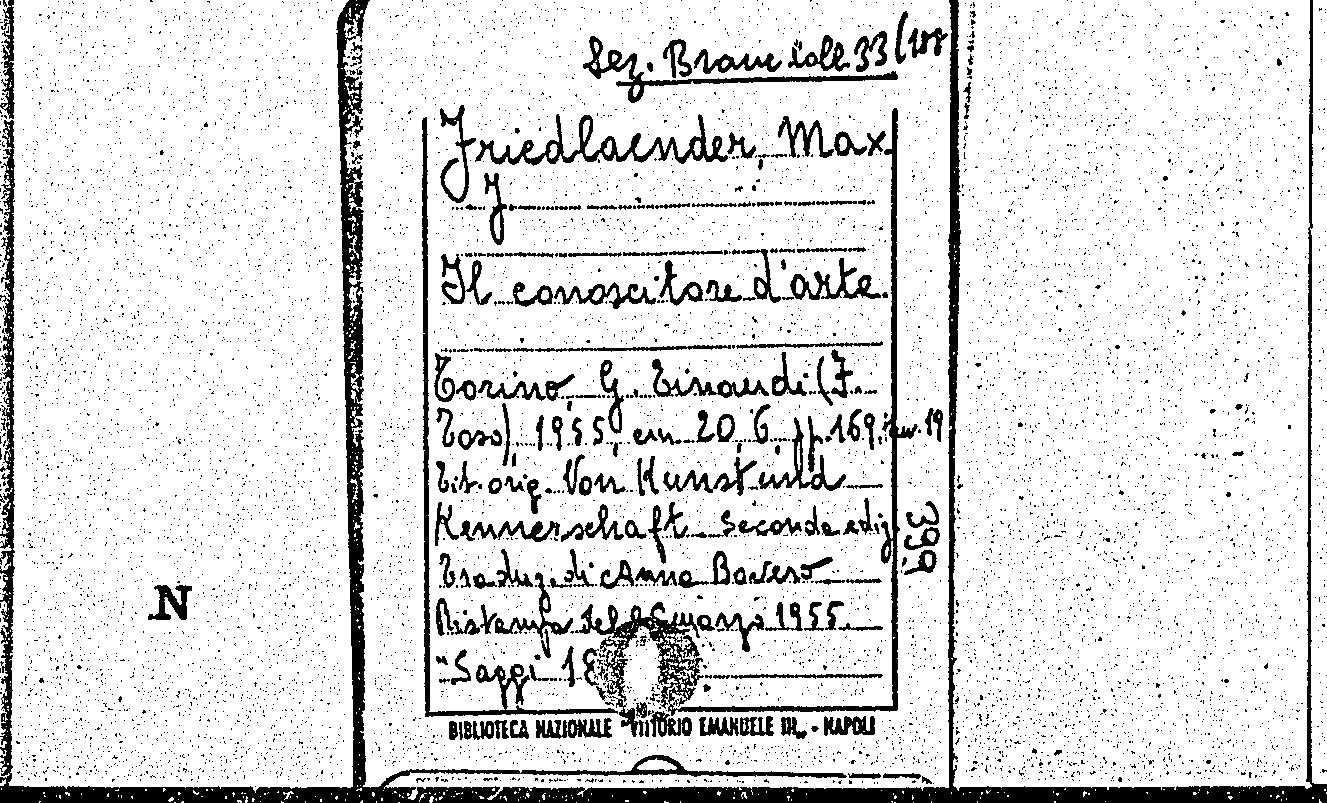 Sez. Branc coll. 33 (188
Friedlaender, Max.
J.
Il conoscitore d'arte.
Torino, G. Einaudi (F.
Toso), 1955, cm. 20,6 pp. 169, tav. 19
Tit. orig. Von Kunst und
Kennerschaft Seconda ediz.
399
Traduz. di Anna Bovero
Ristampa del marzo 1955.
"Saggi
N
BIBLIOTECA NAZIONALE "VITTORIO EMANUELE III" - NAPOLI